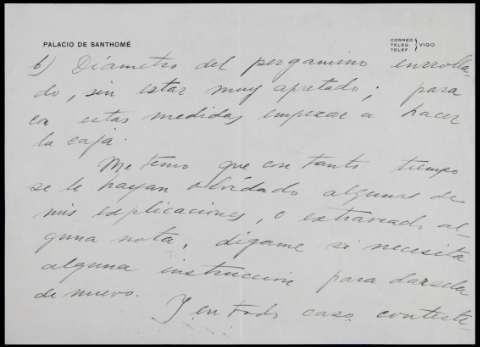 PALACIO DE SANTHOMÉ
CORREO
TELEG.
TELEF.
VIGO
b) Diámetro del pergamino enrrolla-
do, sin estar muy apretado; para
con estas medidas empezar a hacer
la caja.
Me temo que con tanto tiempo
se le hayan olvidado algunas de
mis explicaciones, o extraviado al-
guna nota, dígame si necesita
alguna instrucción para darsela
de nuevo.
Y en todo caso conteste